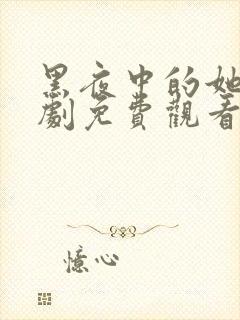 黑夜中的她
劇免費觀看
憶心